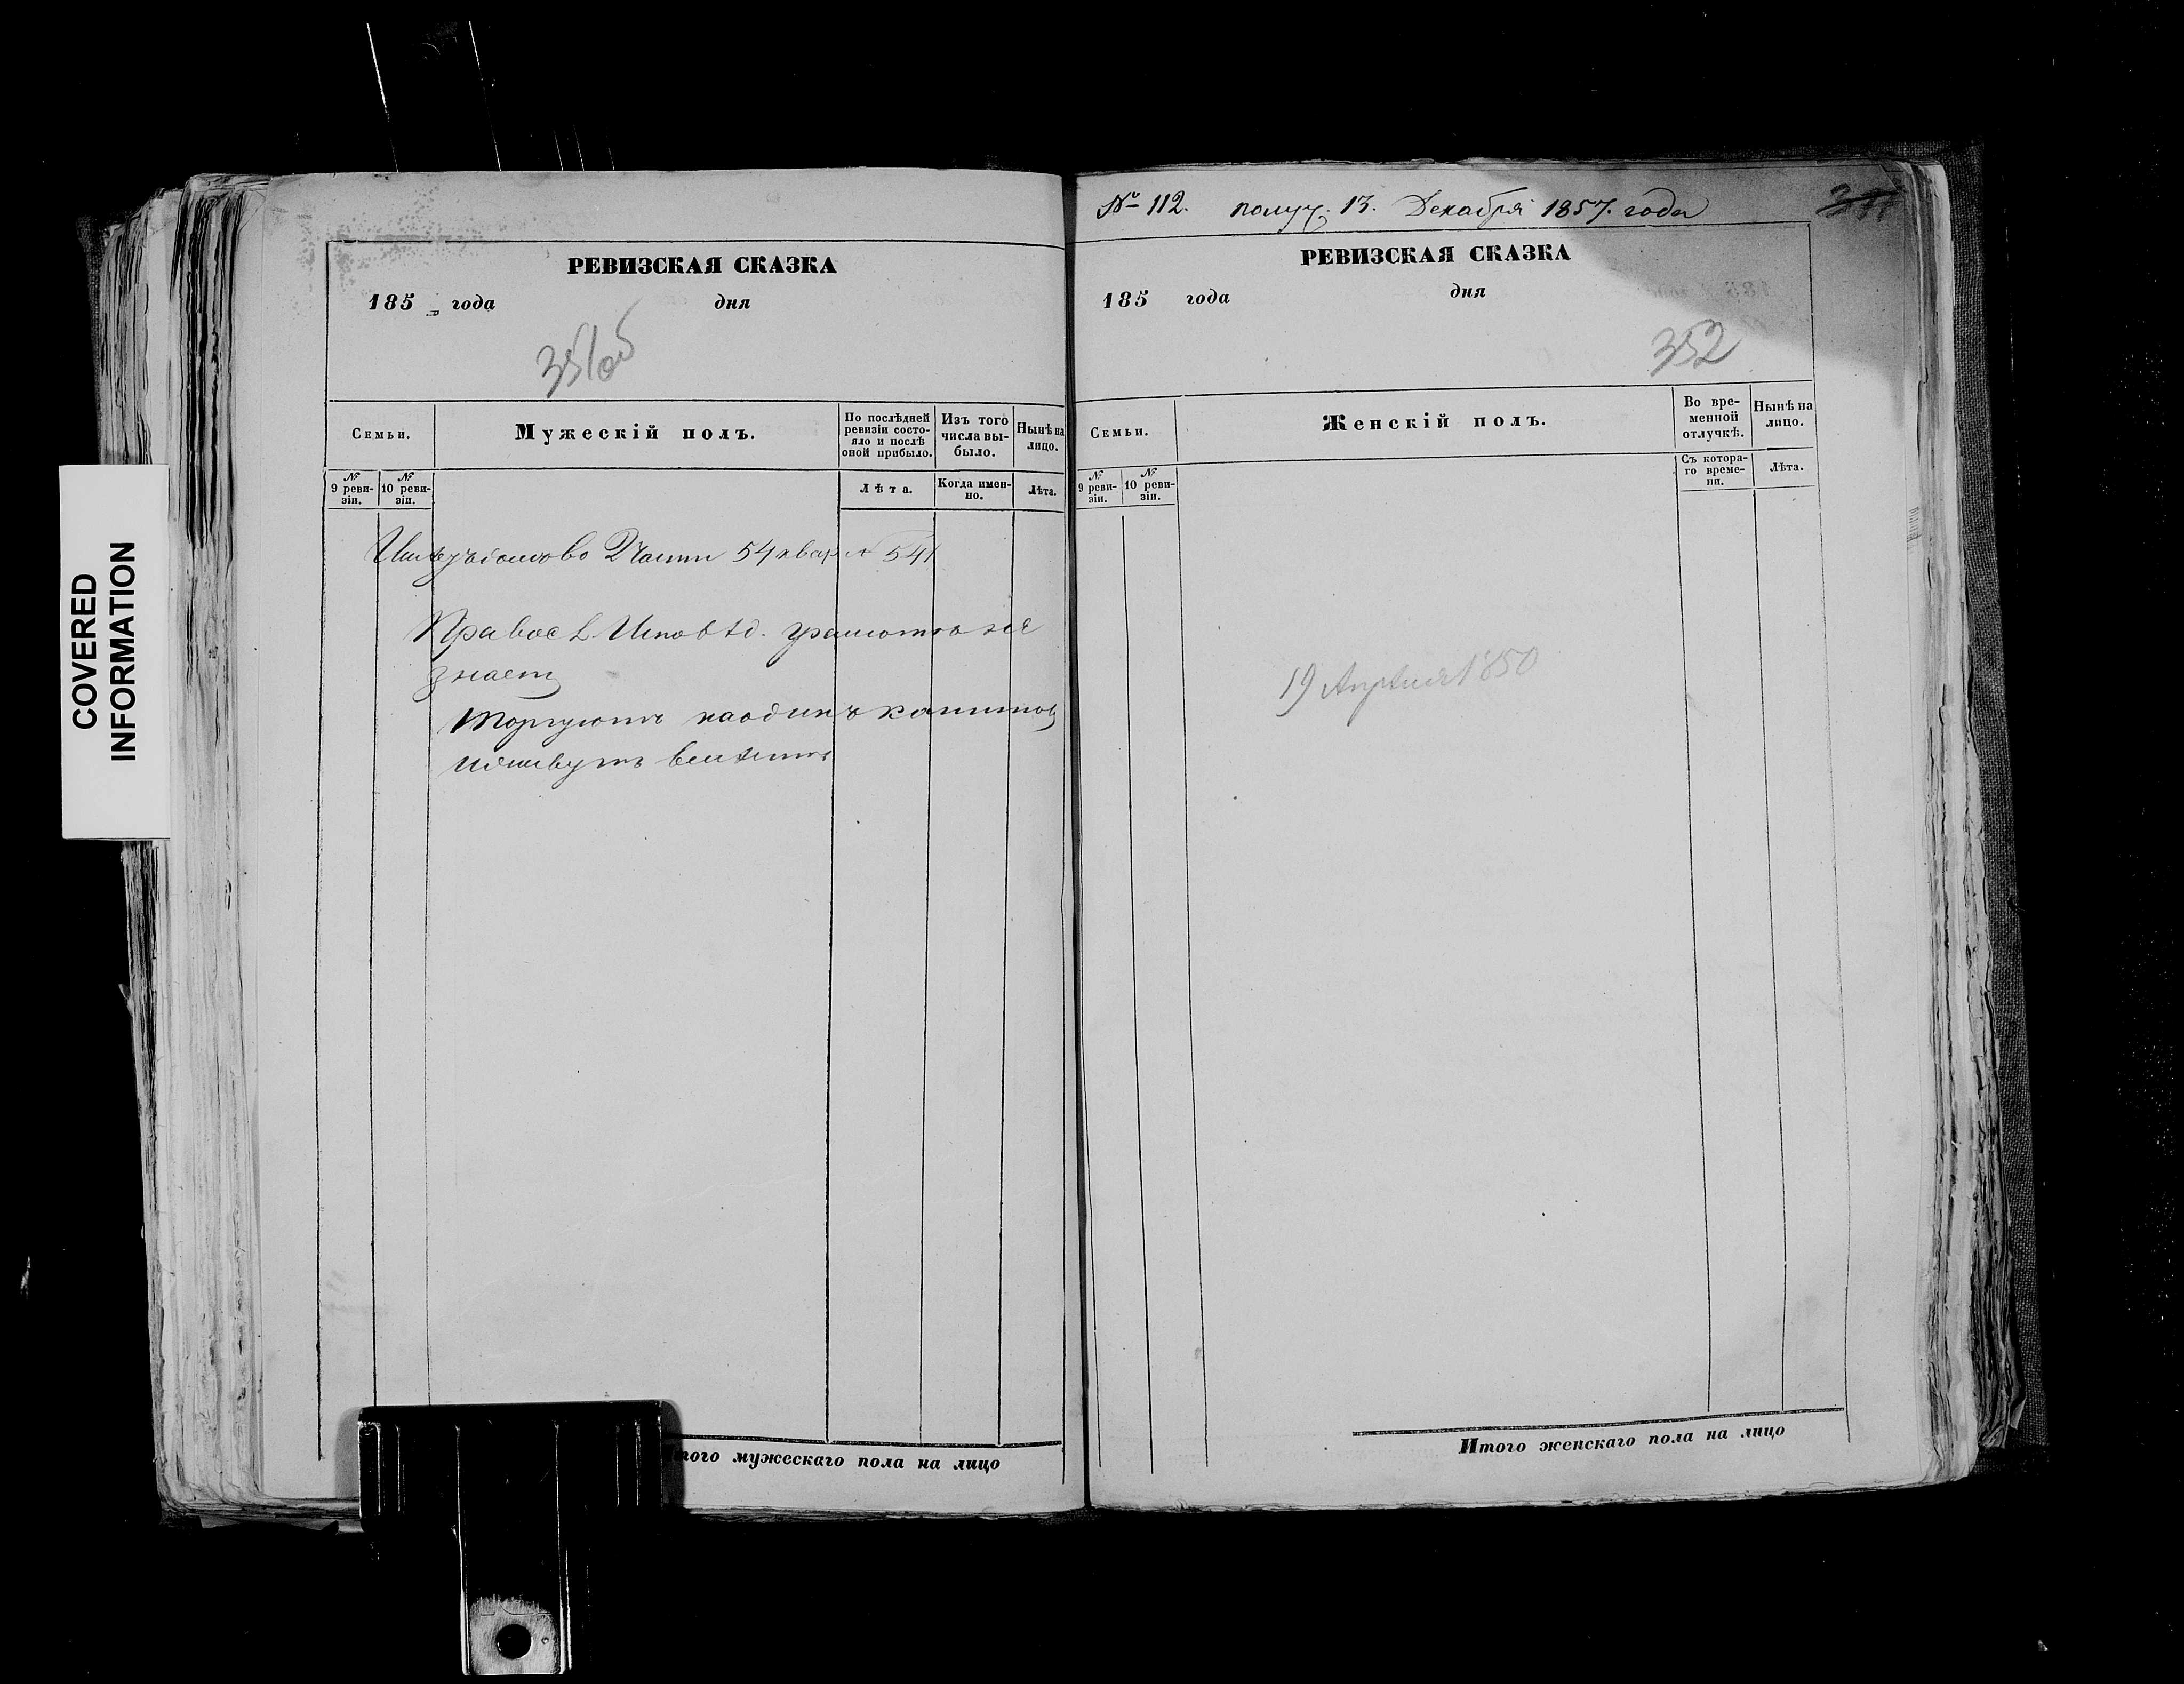 COVERED
INFORMATION
РЕВИЗСКАЯ СКАЗКА
185 года дня
351об
Семьи.
Мужескій полъ.
По послѣдней ревизіи состо-
яло и послѣ
оной прибыло.
Изъ того
числа вы-
было.
Нынѣ на
лицо.
№
9 реви-
зіи.
№
10 реви-
зіи.
Лѣта.
Когда имен-
но.
Лѣта.
Части 54 квар № 541
Правос Исповѣд. грамотѣ не
знает
Торгуютъ наодинъ капитал
иживутъ вмѣстѣ
Итого мужескаго пола на лицо
№ 112. получ. 13. Декабря 1857. года
РЕВИЗСКАЯ СКАЗКА
185 года дня
352
Семьи.
Женскій полъ.
Во вре-
менной
отлучкѣ.
Нынѣ на
лицо.
№
9 реви-
зіи.
№
10 реви-
зіи.
Съ котора-
го време-
ни.
Лѣта.
19 Апрѣля 1850
Итого женскаго пола на лицо